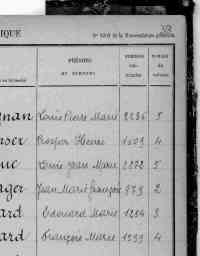 IQUE
N° de la Nomenclature générale.
PRÉNOMS
ET SURNOMS
NUMÉROS
gnan Louis Pierre Marie 2236 5
nser Prosper Henri 1509 4
uc Louis Jean Marie 2272 5
nger Jean Marie François 979 2
ard Edouard Marie 1284 3
ard François Marie 1599 4